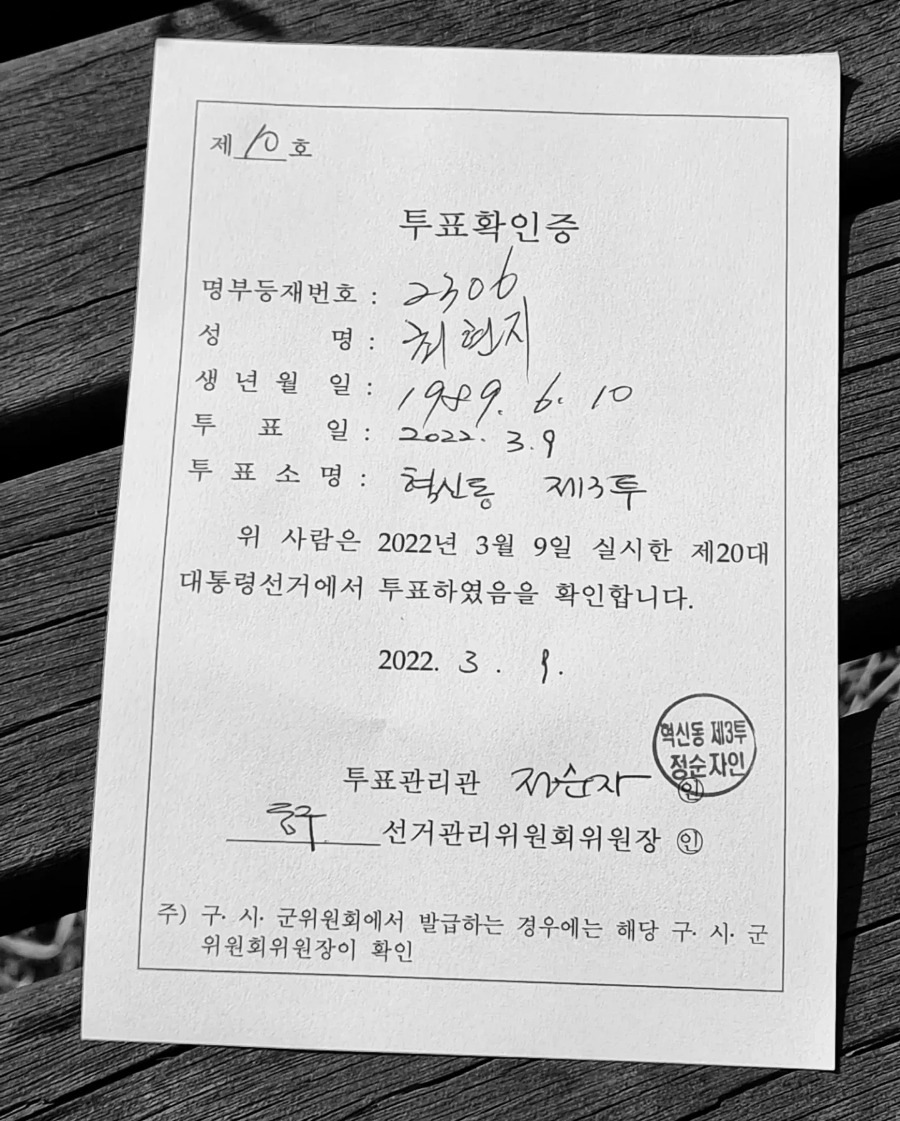 제 10 호
투표확인증
명부등재번호 : 2306
성 명 : 최현지
생 년 월 일 : 1989. 6. 10
투 표 일 : 2022. 3. 9
투 표 소 명 : 혁신동 제13투
위 사람은 2022년 3월 9일 실시한 제20대
대통령선거에서 투표하였음을 확인합니다.
2022. 3 . 9.
혁신동 제3투
정순자인
투표관리관 정순자 ㊞
선거관리위원회위원장 ㊞
주) 구· 시· 군위원회에서 발급하는 경우에는 해당 구· 시· 군
위원회위원장이 확인